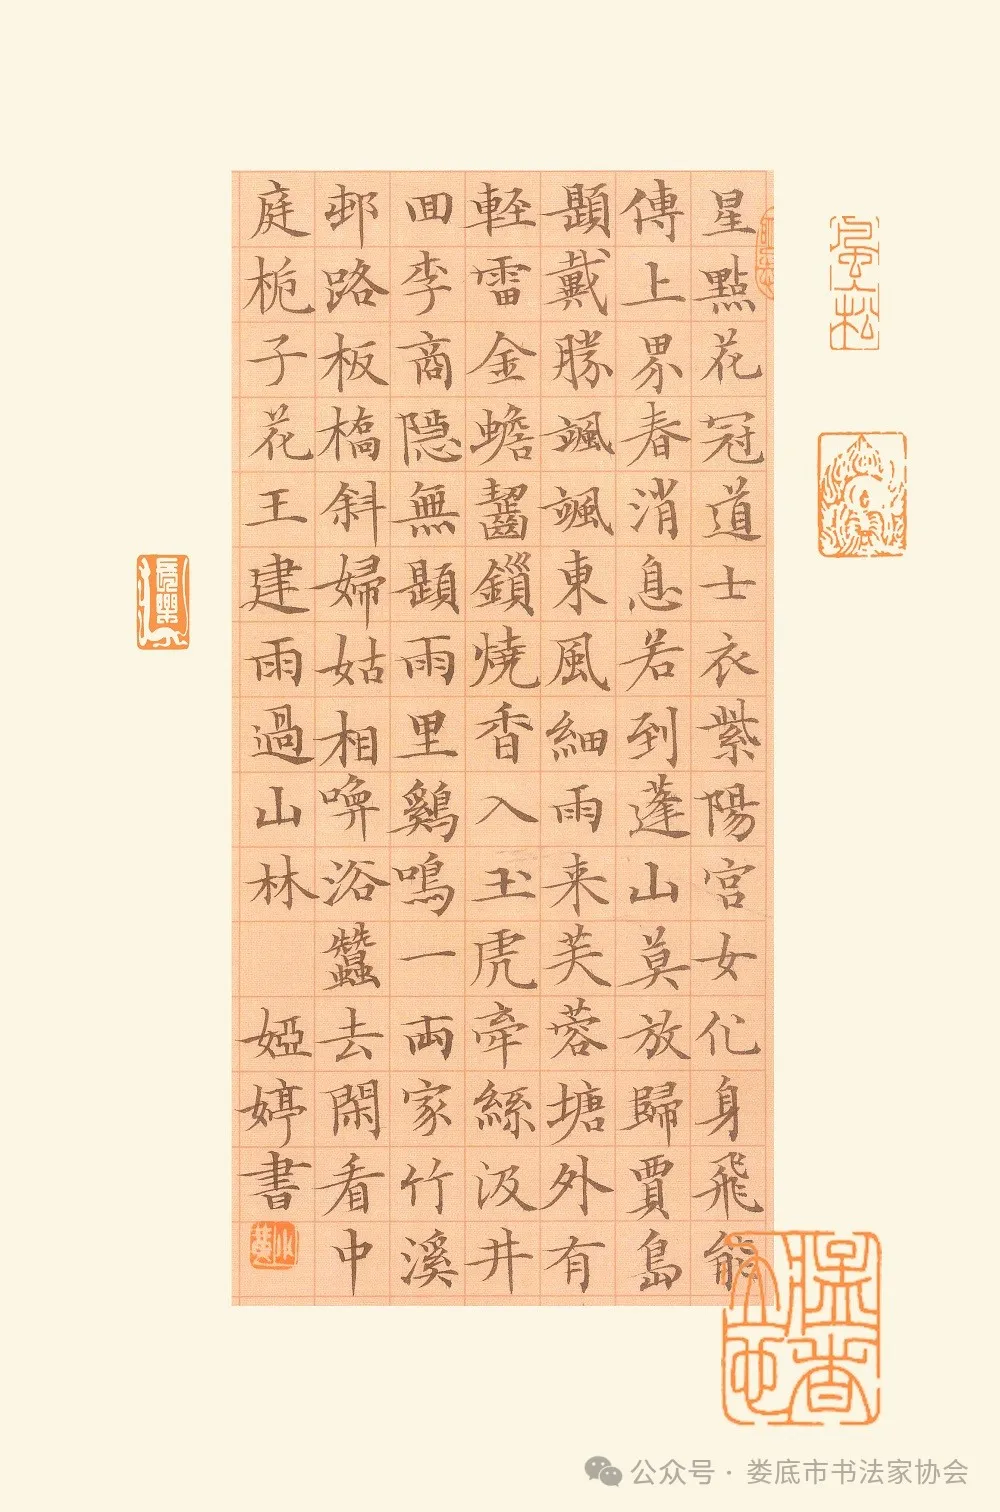 星點花冠道士衣紫陽宮女化身飛能
傳上界春消息若到蓬山莫放歸賈島
題戴勝颯颯東風細雨来芙蓉塘外有
輕雷金蟾齧鎖燒香入玉虎牽絲汲井
回李商隱無題雨里雞鳴一兩家竹溪
邨路板橋斜婦姑相喚浴蠶去閑看中
庭梔子花王建雨過山林
婭婷書
公众号·娄底市书法家协会